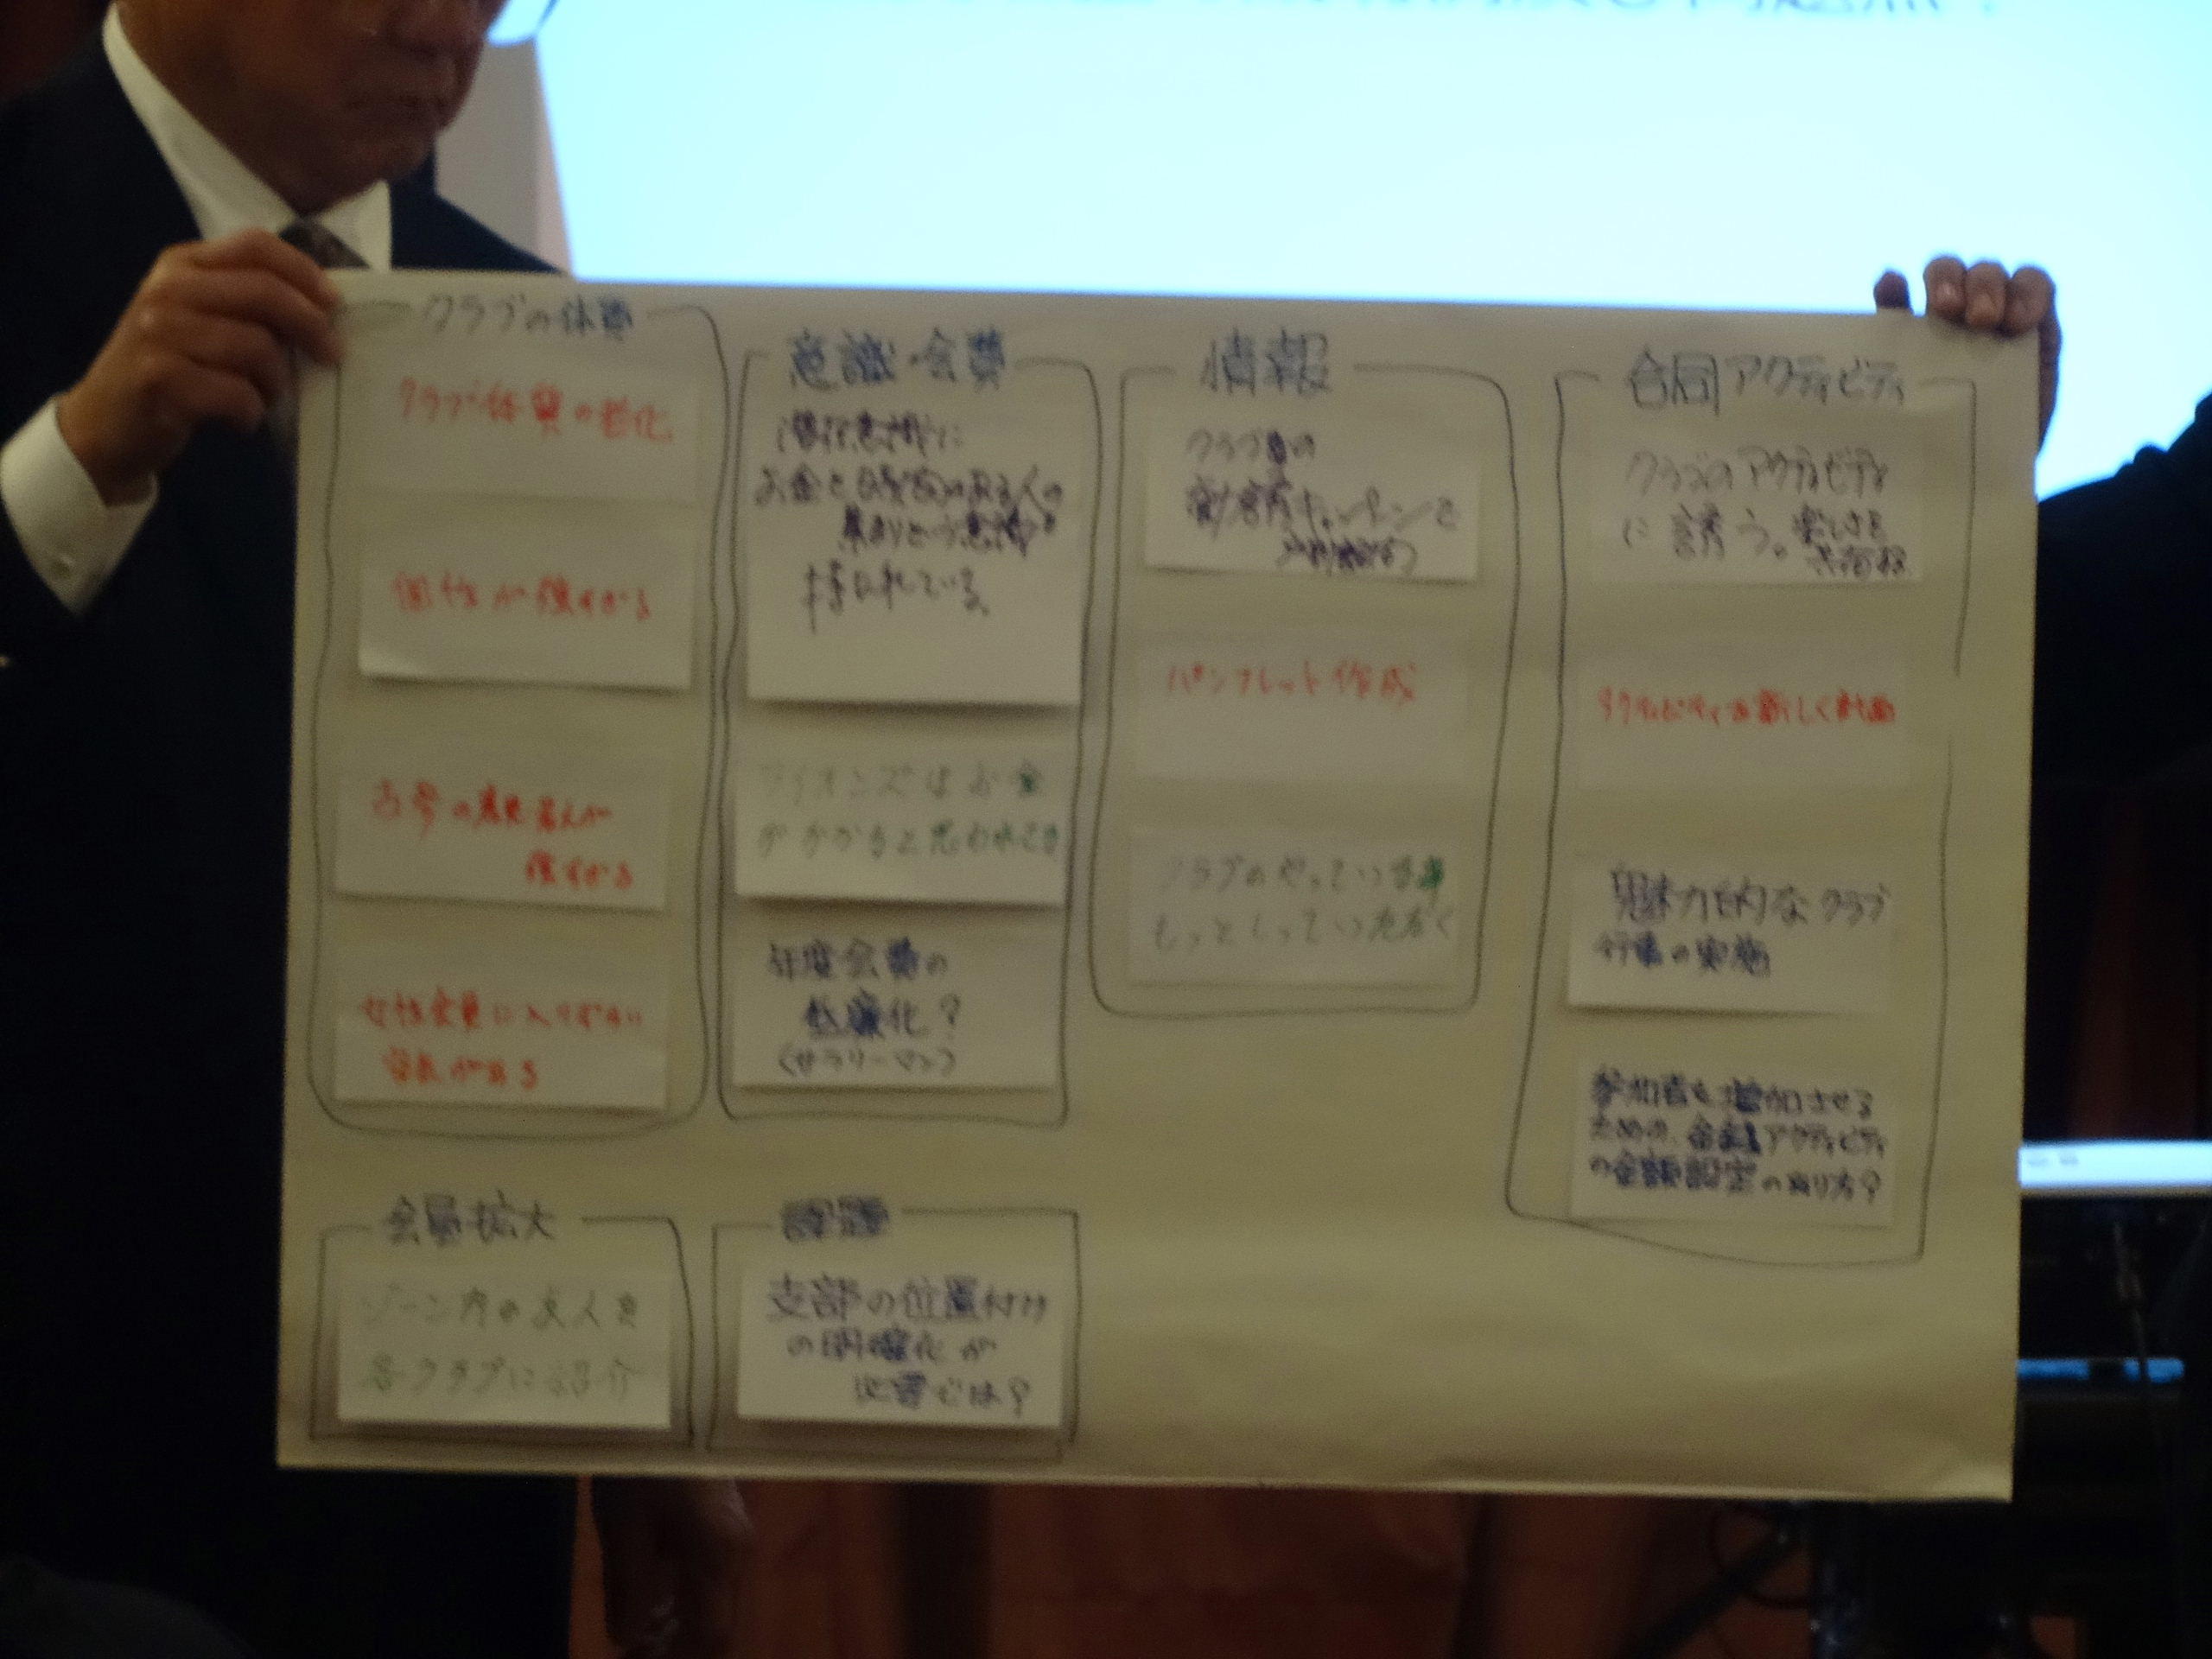 クラブの体質
クラブ体質の老化
個性が強すぎる
古参の
強すぎる
女性会員に入りずらい
会費がある
意識・会費
潜在意識に
お金と のある人の
集まりという意識を
持たれている。
ライオンズはお金
がかかると思われてる
年度会費の
低廉化？
(サラリーマン)
情報
クラブ員の
キャンペーンを
パンフレット作成
クラブのやっている事
もっとしっていただく
合同アクティビティ
クラブのアクティビティ
に誘う。楽しさを
アクティビティを新しく計画
魅力的なクラブ
行事の実施
参加者を増加させる
ための、合同アクティビティ
の金額設定のあり方？
会員拡大
ゾーン内の友人を
各クラブに紹介
課題
支部の位置付け
の明確化が
必要では？